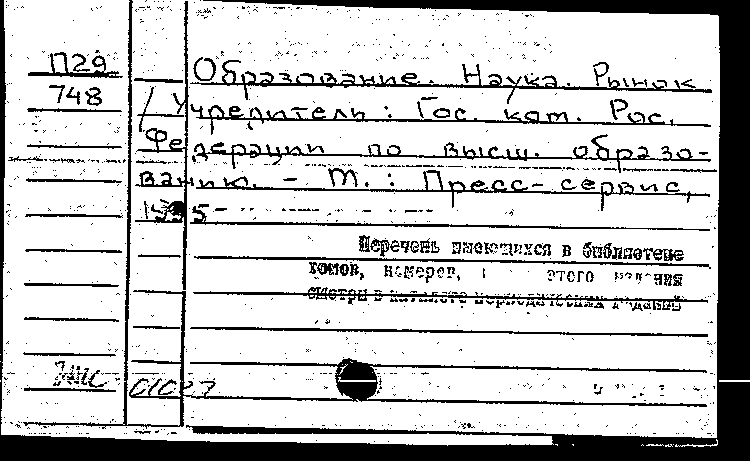 П29
748
Образование. Наука. Рынок
/ Учредитель: Гос. ком. Рос.
Федерации по высш. образо-
ванию. - М.: Пресс-сервис,
1995-
Перечень имеющихся в библиотеке
томов, номеров, этого издания
смотри в каталоге периодических изданий